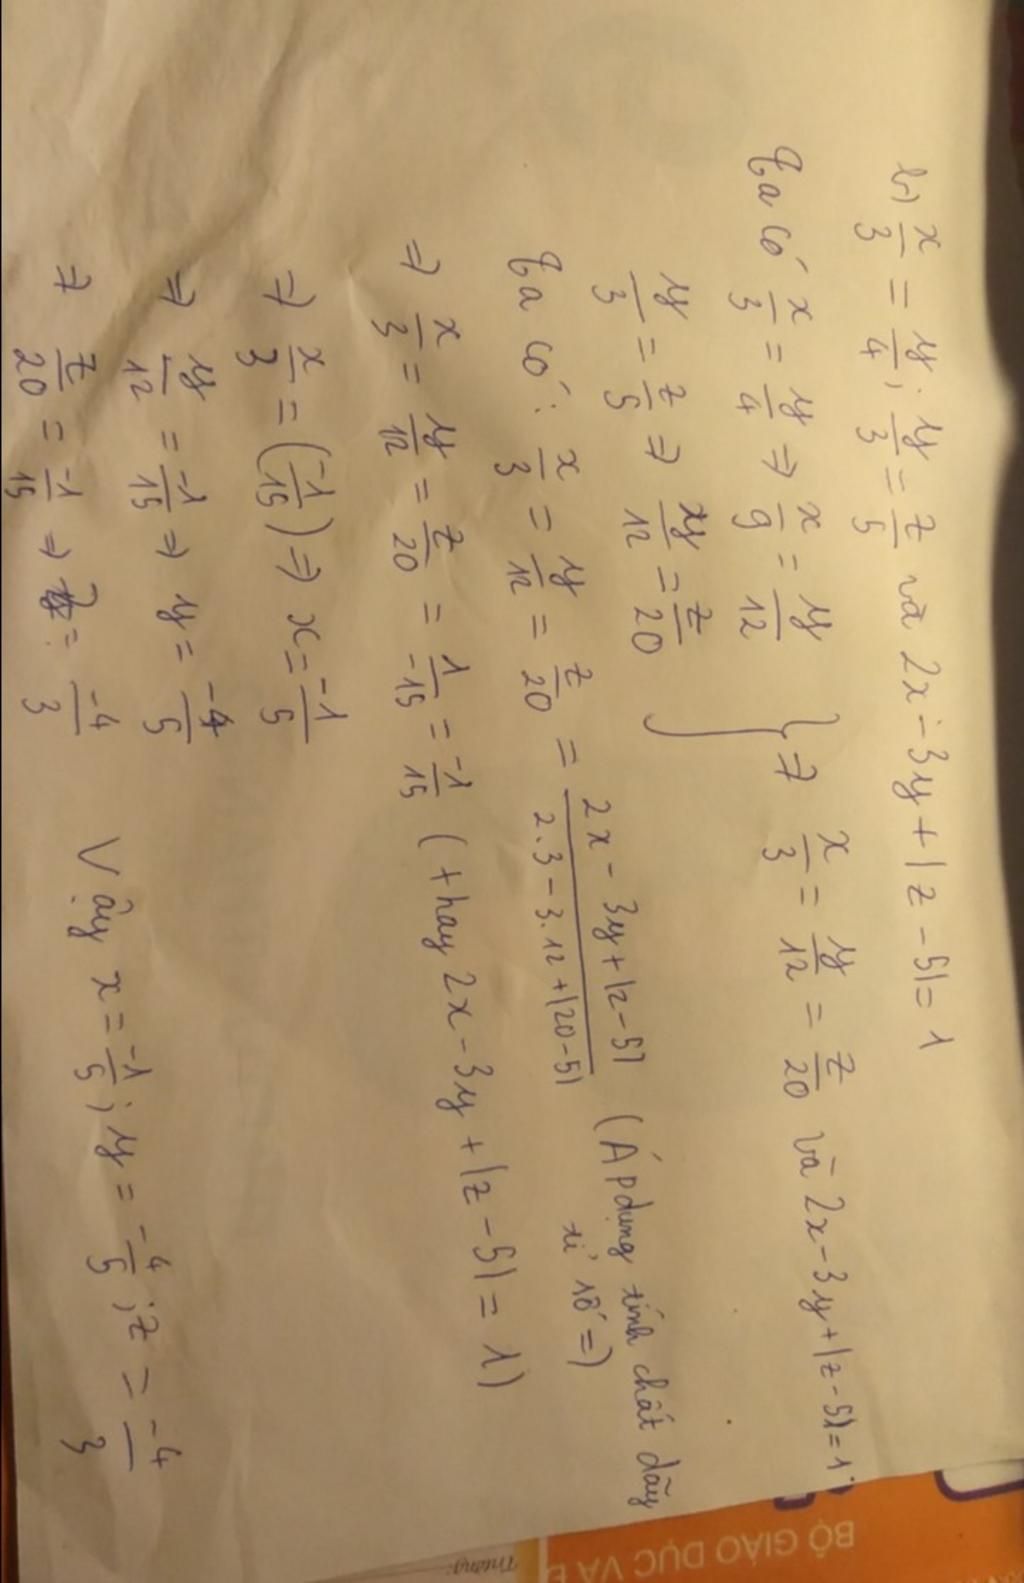 b) x/3 = y/4; y/3 = z/5 và 2x - 3y + |z - 5| = 1
Ta có x/3 = y/4 => x/9 = y/12
y/3 = z/5 => y/12 = z/20
} => x/3 = y/12 = z/20 và 2x - 3y + |z - 5| = 1
Ta có: x/3 = y/12 = z/20 = (2x - 3y + |z - 5|)/(2.3 - 3.12 + |20 - 5|) (Áp dụng tính chất dãy
tỉ số =)
=> x/3 = y/12 = z/20 = 1/-15 = -1/15 (thay 2x - 3y + |z - 5| = 1)
=> x/3 = (-1/15) => x = -1/5
=> y/12 = -1/15 => y = -4/5
=> z/20 = -1/15 => z = -4/3
Vậy x = -1/5; y = -4/5; z = -4/3
BỘ GIÁO DỤC VÀ
Trường: